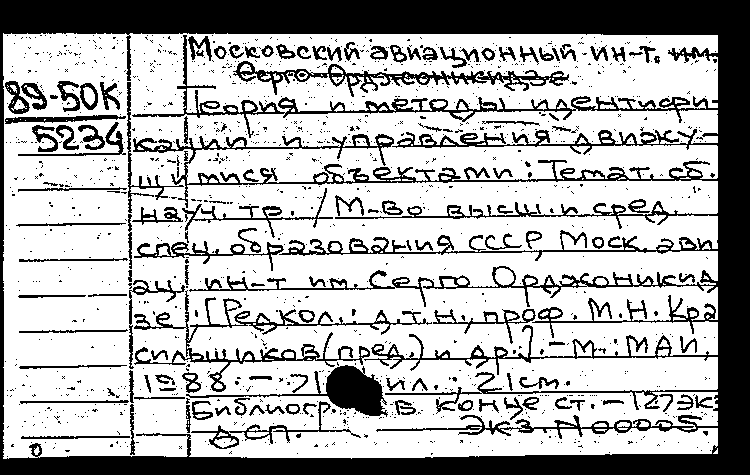 Московский авиационный ин-т. им.
Серго Орджоникидзе.
89-50К
5234
Теория и методы идентифи-
кации и управления движу-
щимися объектами : Темат. сб.
науч. тр. / М-во высш. и сред.
спец. образования СССР, Моск. ави
ац. ин-т им. Серго Орджоникид
зе ; [Редкол.: д.т.н., проф. М.Н. Кра
сильщиков (пред.) и др.]. - М. : МАИ,
1988. - 71 ил. ; 21 см.
Библиогр. в конце ст. - 127 экз
ДСП. Экз. N 00005.